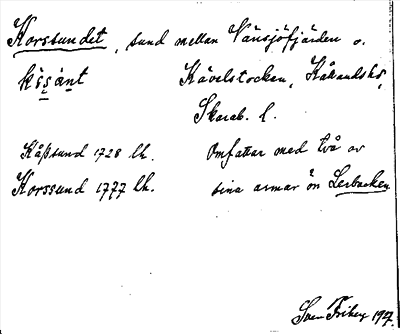 Korssundet, sund mellan Vänsjöfjärden o.
Kävelstocken, Håkandskö,
Skarab. l.
Kåßsund 1728 lk.
Omfattar med två av
Korssund 1777 lk.
sina armar ön Lerbacken
Sven Friberg